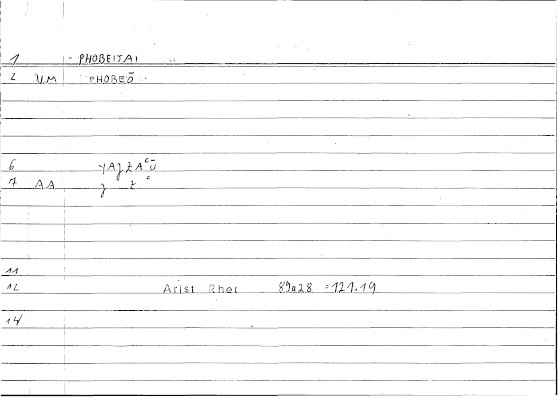 1 - PHOBEITAI
2 V.M PHOBEŌ
6
7 AA
11
12 Arist Rhet 89a28 =121.19
14